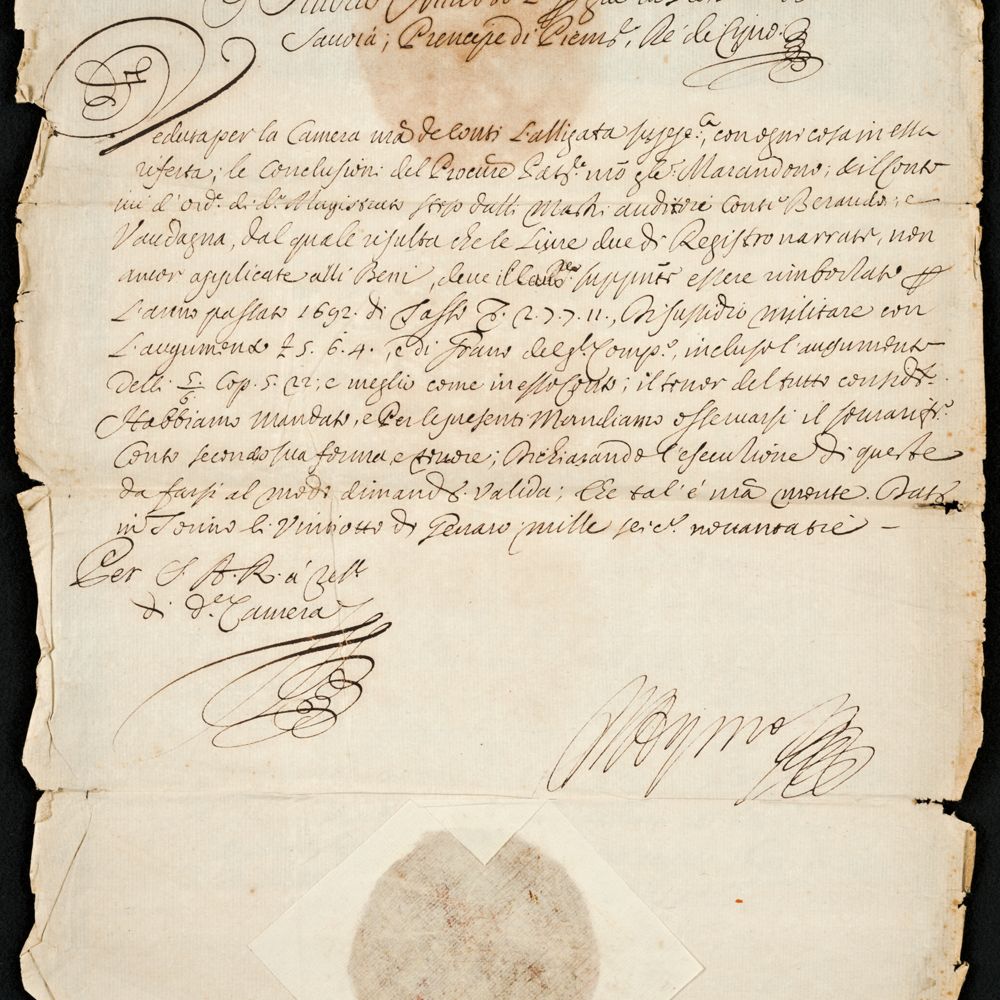 Savoia; Prencipe di Piem.te, Re de Cipro.
Veduta per la Camera nrã de Conti l'alligata supp.ca, con ogni cosa in essa
riferta; le Conclusioni del Procure Pat.le nrõ gle. Marandono; et il Conto
d'ord.e di d.o Magistrato steso dalli Mastri auditori Conti Beraudo, e
Vaudagna, dal quale risulta che le Livre due di Registro narrate, non
ancor applicate alli Beni, deve il supp.nte essere rimborsato p
L'anno passato 1692. di Tasso £. 2. 7. 7. 11., Di sussidio militare con
L'augumento £ 5. 6. 4., e di Grano del gl. Comp.o, incluso l'augumento
delli Cop. 5. 22; e meglio come in esso Conto; il tenor del tutto consid.to
Habbiamo mandato, e Per le presenti Mandiamo osservarsi il
Conto secondo sua forma, e tenore; Dichiarando l'esecutione di queste
da farsi al modo dimand.o valida; Che tal' é nrã mente. Dat.
in Torino li Vintiotto di Genaro mille seic.o novantatré –
Per S. A. R. á rel.e
di d.a Camera